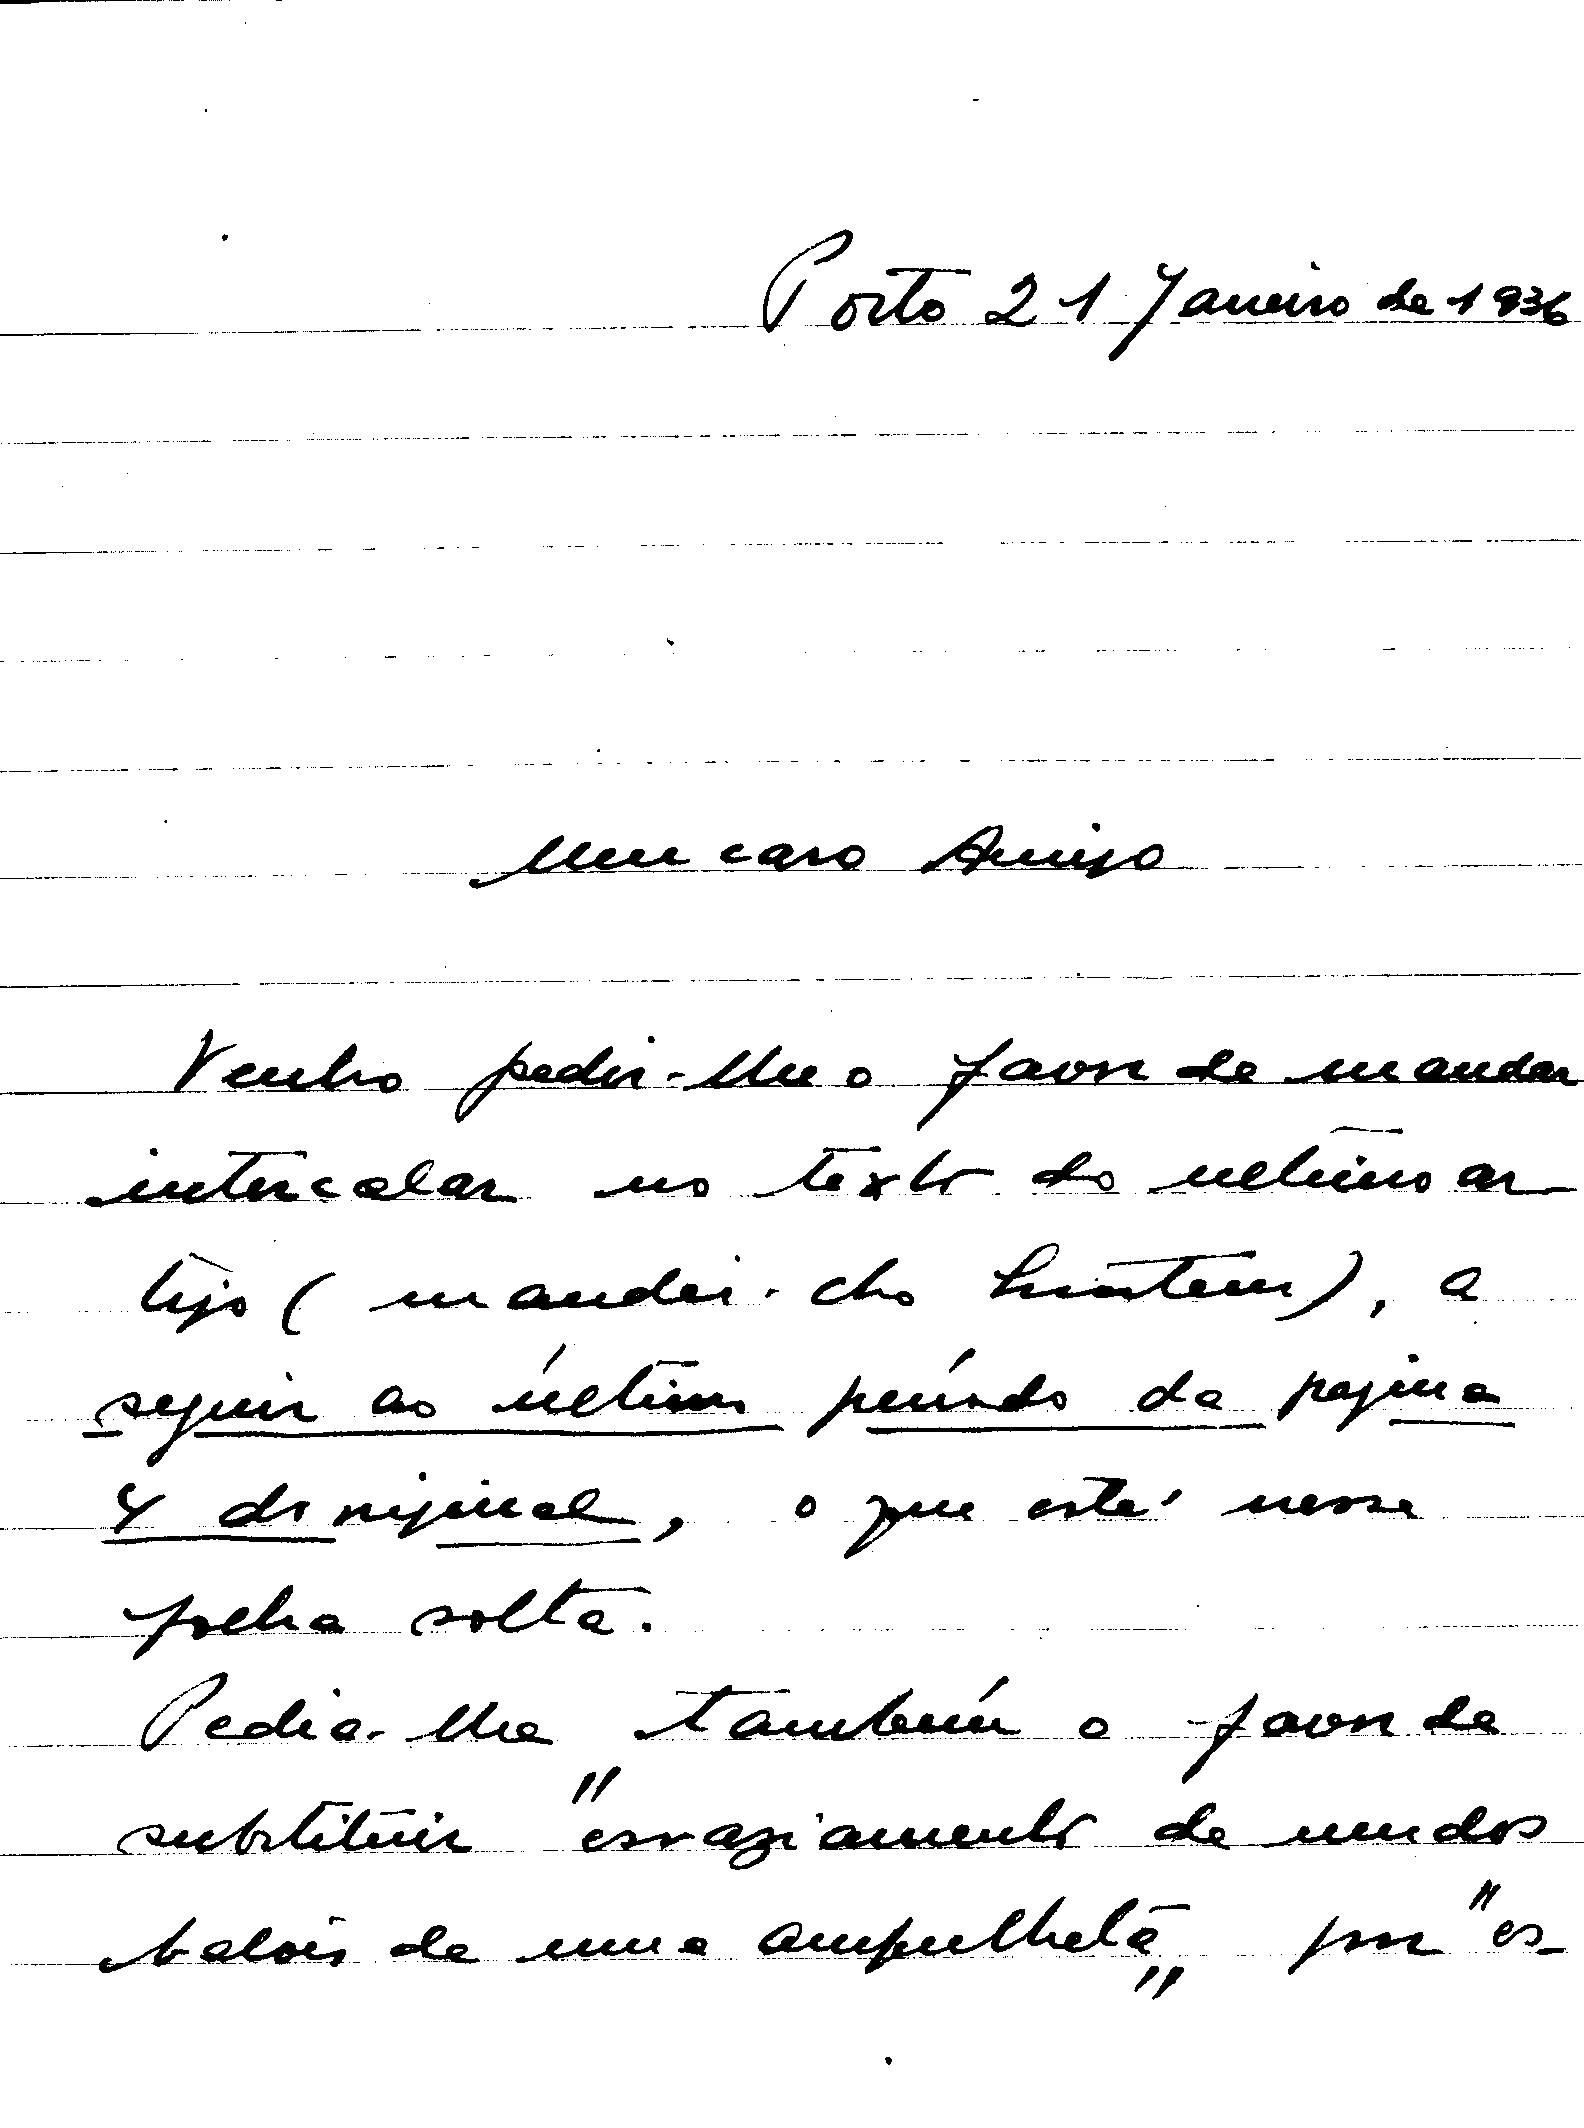 Porto 21 Janeiro de 1936
Meu caro Amigo
Venho pedir-lhe o favor de mandar
intercalar no texto do ultimo ar-
tigo ( mandei-cho ), a
seguir ao último período da pagina
4 do original, o que está nessa
folha solta.
Pedia-lhe também o favor de
substituir "esvaziamento de um dos
balões de uma ampulheta" por "es-